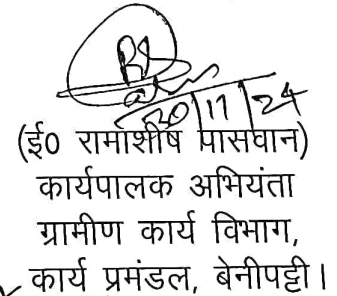 30/11/24
(ई0 रामाशीष पासवान)
कार्यपालक अभियंता
ग्रामीण कार्य विभाग,
कार्य प्रमंडल, बेनीपट्टी।